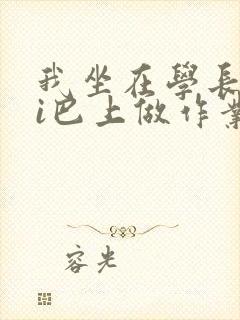 我坐在學長
i巴上做作業
容光